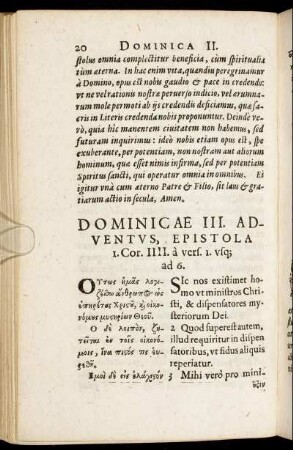 20 DOMINICA II.
stolus omnia complectitur beneficia, cùm spiritualia
tum æterna. In hac enim vita, quandiu peregrinamur
à Domino, opus est nobis gaudio & pace in credendo:
vt ne vel rationis nostræ peruerso iudicio, vel ærumna-
rum mole permoti ab ijs credendis deficiamus, quæ sa-
cris in Literis credenda nobis proponuntur. Deinde ve-
rò, quia hîc manentem ciuitatem non habemus, sed
futuram inquirimus: ideò nobis etiam opus est, spe
exuberante, per potentiam, non nostram aut aliorum
hominum, quæ esset nimis infirma, sed per potentiam
Spiritus sancti, qui operatur omnia in omnibus. Ei
igitur vnà cum æterno Patre & Filio, sit laus & gra-
tiarum actio in secula, Amen.
DOMINICAE III. AD-
VENTVS, EPISTOLA
1. Cor. IIII. à vers. 1. vsq;
ad 6.
Οὕτως ἡμᾶς λογι-
ζέσθω ἄνθρωπος ὡς
ὑπηρέτας Χριστοῦ, καὶ οἰκο-
νόμους μυστηρίων Θεοῦ.
Ὃ δὲ λοιπὸν, ζη-
τεῖται ἐν τοῖς οἰκονό-
μοις, ἵνα πιστός τις εὑ-
ρεθῇ.
Ἐμοὶ δὲ εἰς ἐλάχιστόν
SIc nos existimet ho-
mo vt ministros Chri-
sti, & dispensatores my-
steriorum Dei.
2 Quod superest autem,
illud requiritur in dispen
satoribus, vt fidus aliquis
reperiatur.
3 Mihi verò pro mini-
ὅζιν